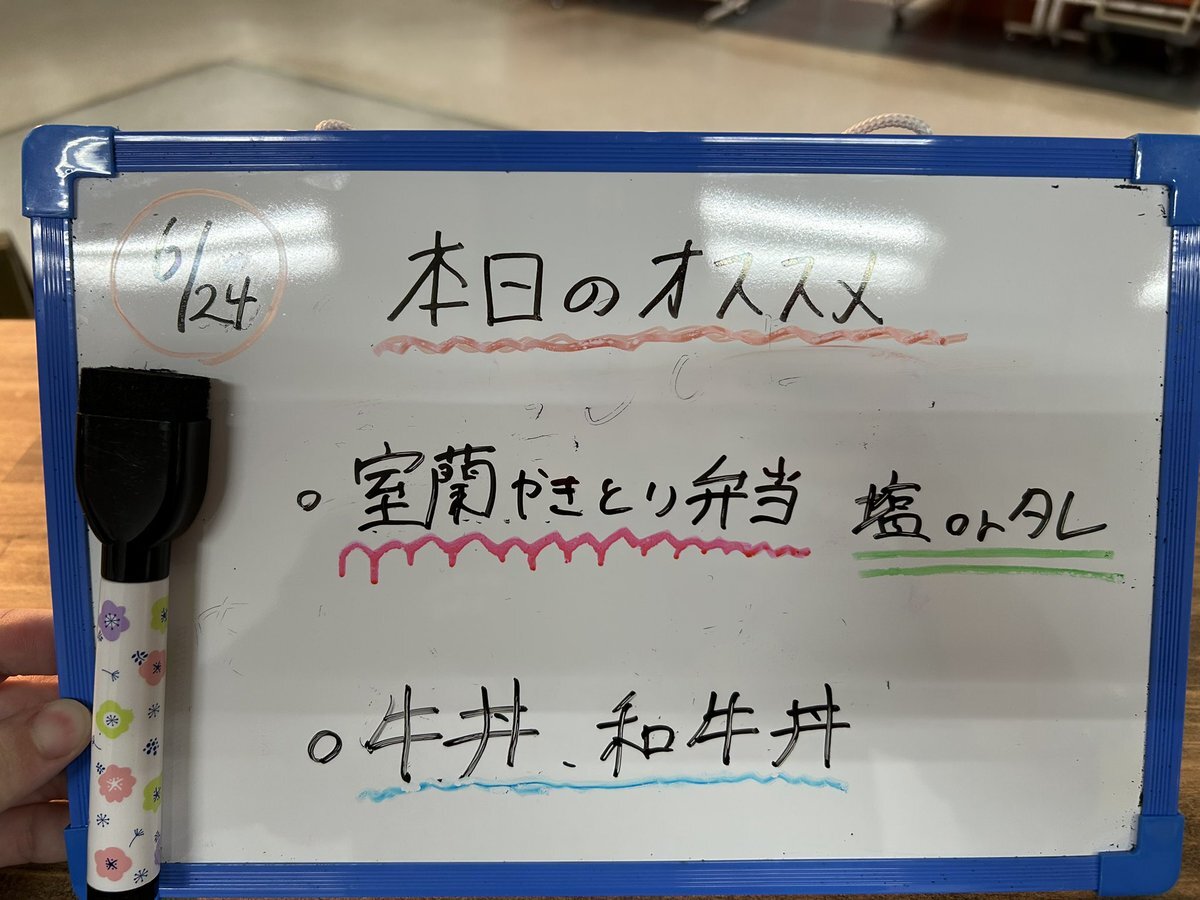 6/24
本日のオススメ
○室蘭やきとり弁当 塩orタレ
○牛丼、和牛丼